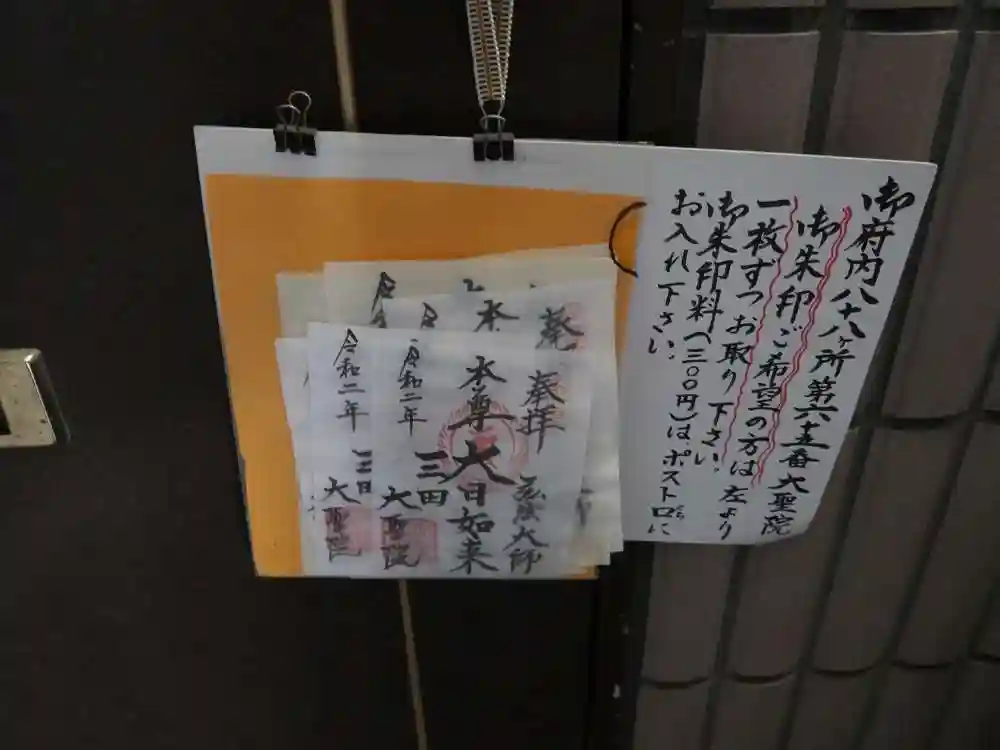 御府内八十八ヶ所 第六十五番 大聖院
御朱印ご希望の方は 左より
一枚ずつお取り下さい。
御朱印料(三〇〇円)は、ポスト口に
くち
お入れ下さい。
奉拝
弘法大師
本尊 大日如来
三田
令和二年
大聖院
令和二年
三田
大聖院
奉
本
令